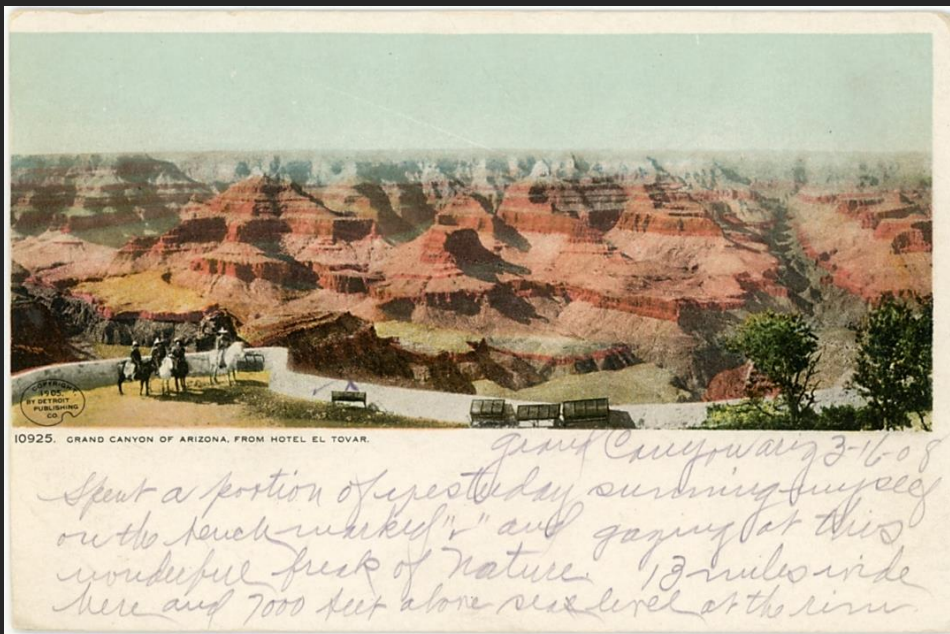 COPYRIGHT
1905.
BY DETROIT
PUBLISHING
CO.
10925. GRAND CANYON OF ARIZONA, FROM HOTEL EL TOVAR.
Grand Canyon ariz 3-16-08
Spent a portion of yesterday sunning myself
on the bench marked "√" and gazing at this
wonderful freak of Nature. 13 miles wide
here and 7000 feet above sea level at the rim.